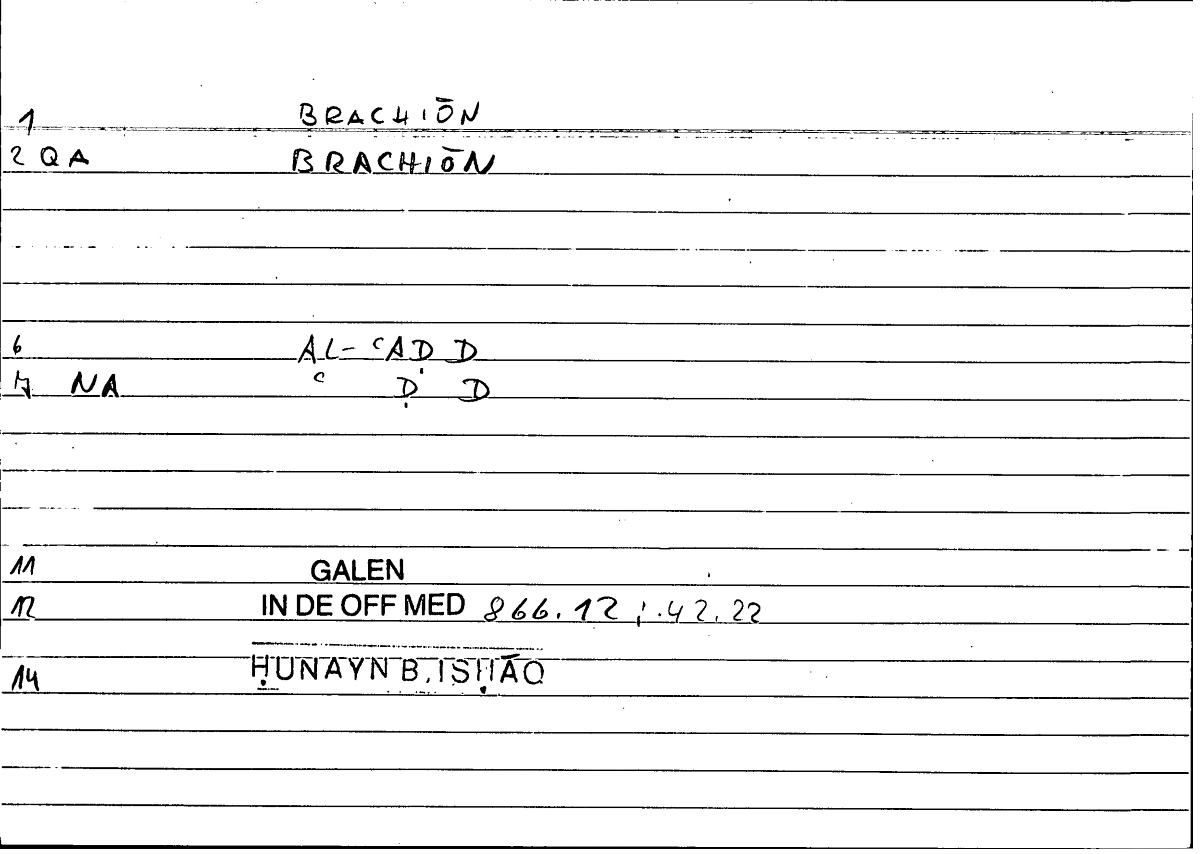 1 BRACHIŌN
2 QA BRACHIŌN
6 AL-ʿAḌ D
7 NA ʿ Ḍ D
11 GALEN
12 IN DE OFF MED 866.12 ; .42.22
14 ḤUNAYN B. ISḤĀQ